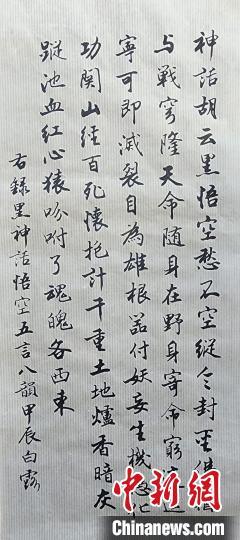 神話胡云黑悟空愁不空縱令封聖佛
与戰穹隆天命隨身在野身寄命窮
寧可即滅裂自為雄根器付妖妄生機忽
功關山經百死懷抱計千重土地爐香暗灰
蹤池血紅心猿吩咐了魂魄各西東
右錄黑神話悟空五言八韻甲辰白露
中新網
www.chinanews.com